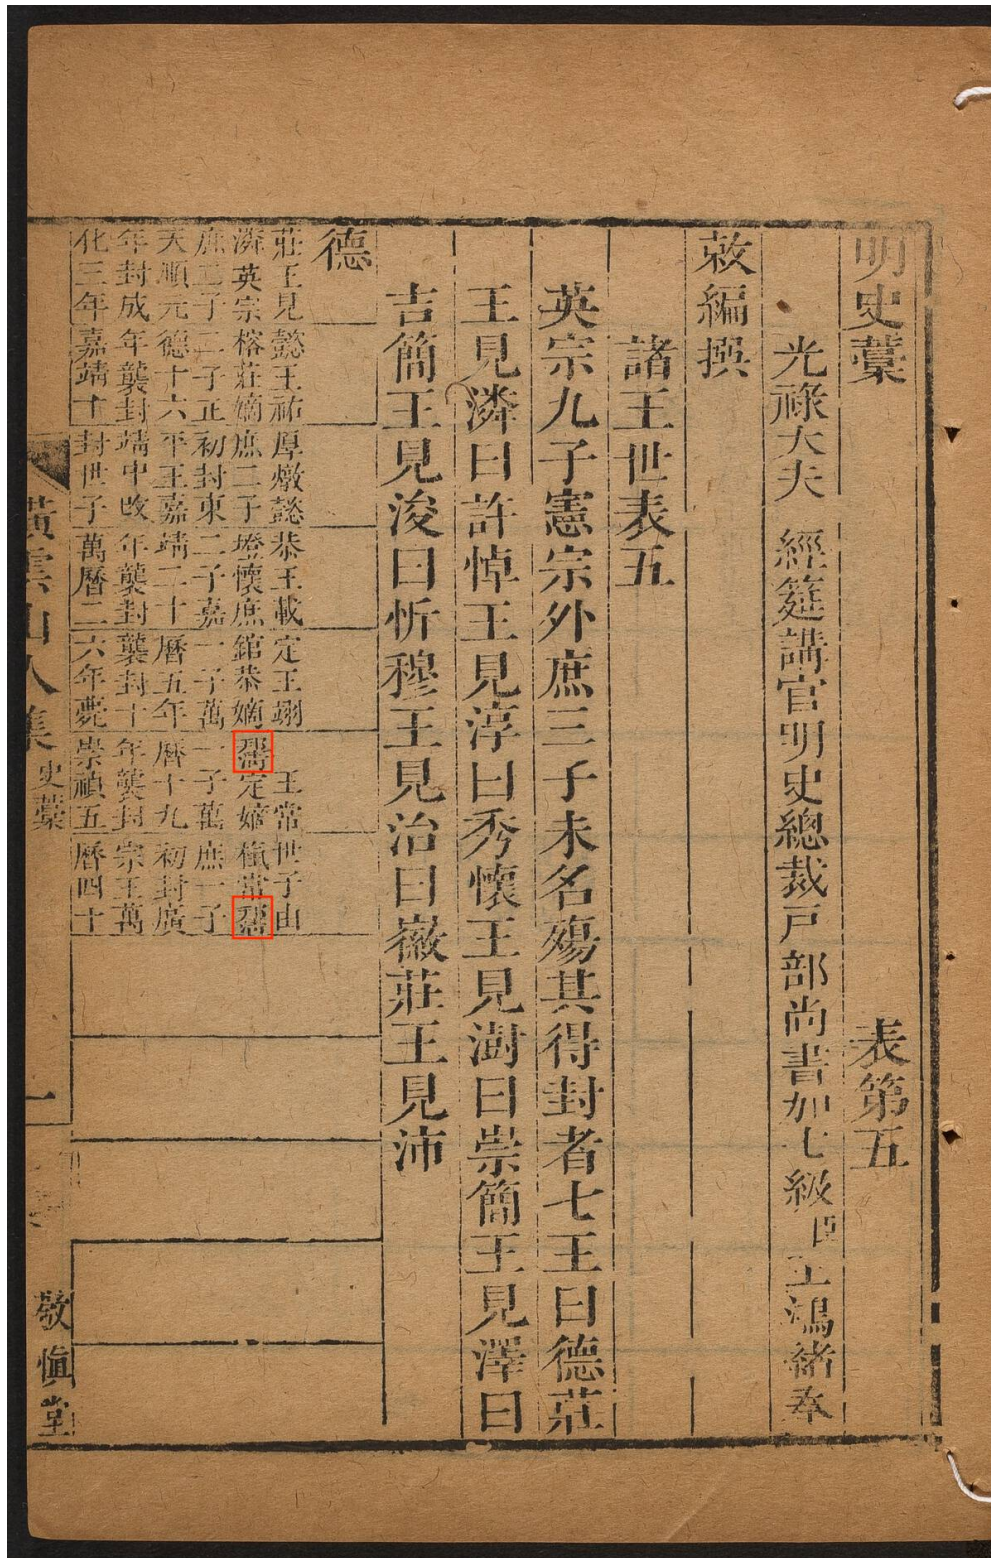 明史藁 表第五
光祿大夫 經筵講官明史總裁戶部尚書加七級臣王鴻緒奉
敕編撰
諸王世表五
英宗九子憲宗外庶三子未名殤其得封者七王曰德莊
王見潾曰許悼王見淳曰秀懷王見澍曰崇簡王見澤曰
吉簡王見浚曰忻穆王見治曰徽莊王見沛
德
莊王見
潾英宗
庶二子
天順元
年封成
化三年
懿王祐
榕莊嫡
二子正
德十六
年襲封
嘉靖十
厚燉懿
庶二子
初封東
平王嘉
靖中改
封世子
恭王載
墱懷庶
二子嘉
靖二十
年襲封
萬曆二
定王翊
錧恭嫡
一子萬
曆五年
襲封十
六年薨
王常
定嫡
一子萬
曆十九
年襲封
崇禎五
世子由
樞常
庶一子
初封廣
宗王萬
曆四十
橫雲山人集 史藁 一 敬慎堂